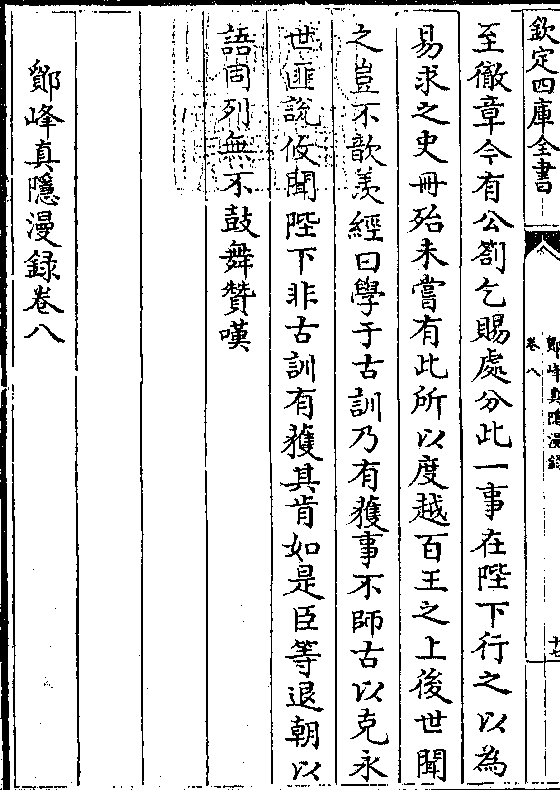 欽定四庫全書
鄮峰真隱漫録
卷八
十七
至徹章今有公劄乞賜處分此一事在陛下行之以為
易求之史冊殆未嘗有此所以度越百王之上後世聞
之豈不歆羨經曰學于古訓乃有獲事不師古以克永
世匪說攸聞陛下非古訓有獲其肯如是臣等退朝以
語同列無不鼓舞贊嘆
鄮峰真隱漫録卷八